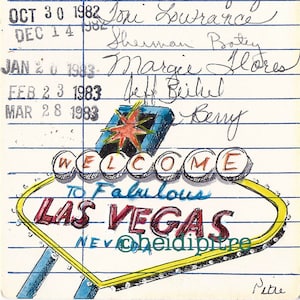 OCT 30 1982 Toni Lowrance
DEC 14 Sherman
JAN 20 1983 Margie Flores
FEB 23 1983 Jeff
MAR 28 1983 Berry
WELCOME
TO Fabulous
LAS VEGAS
NEVADA
©heidipitre
Pitre